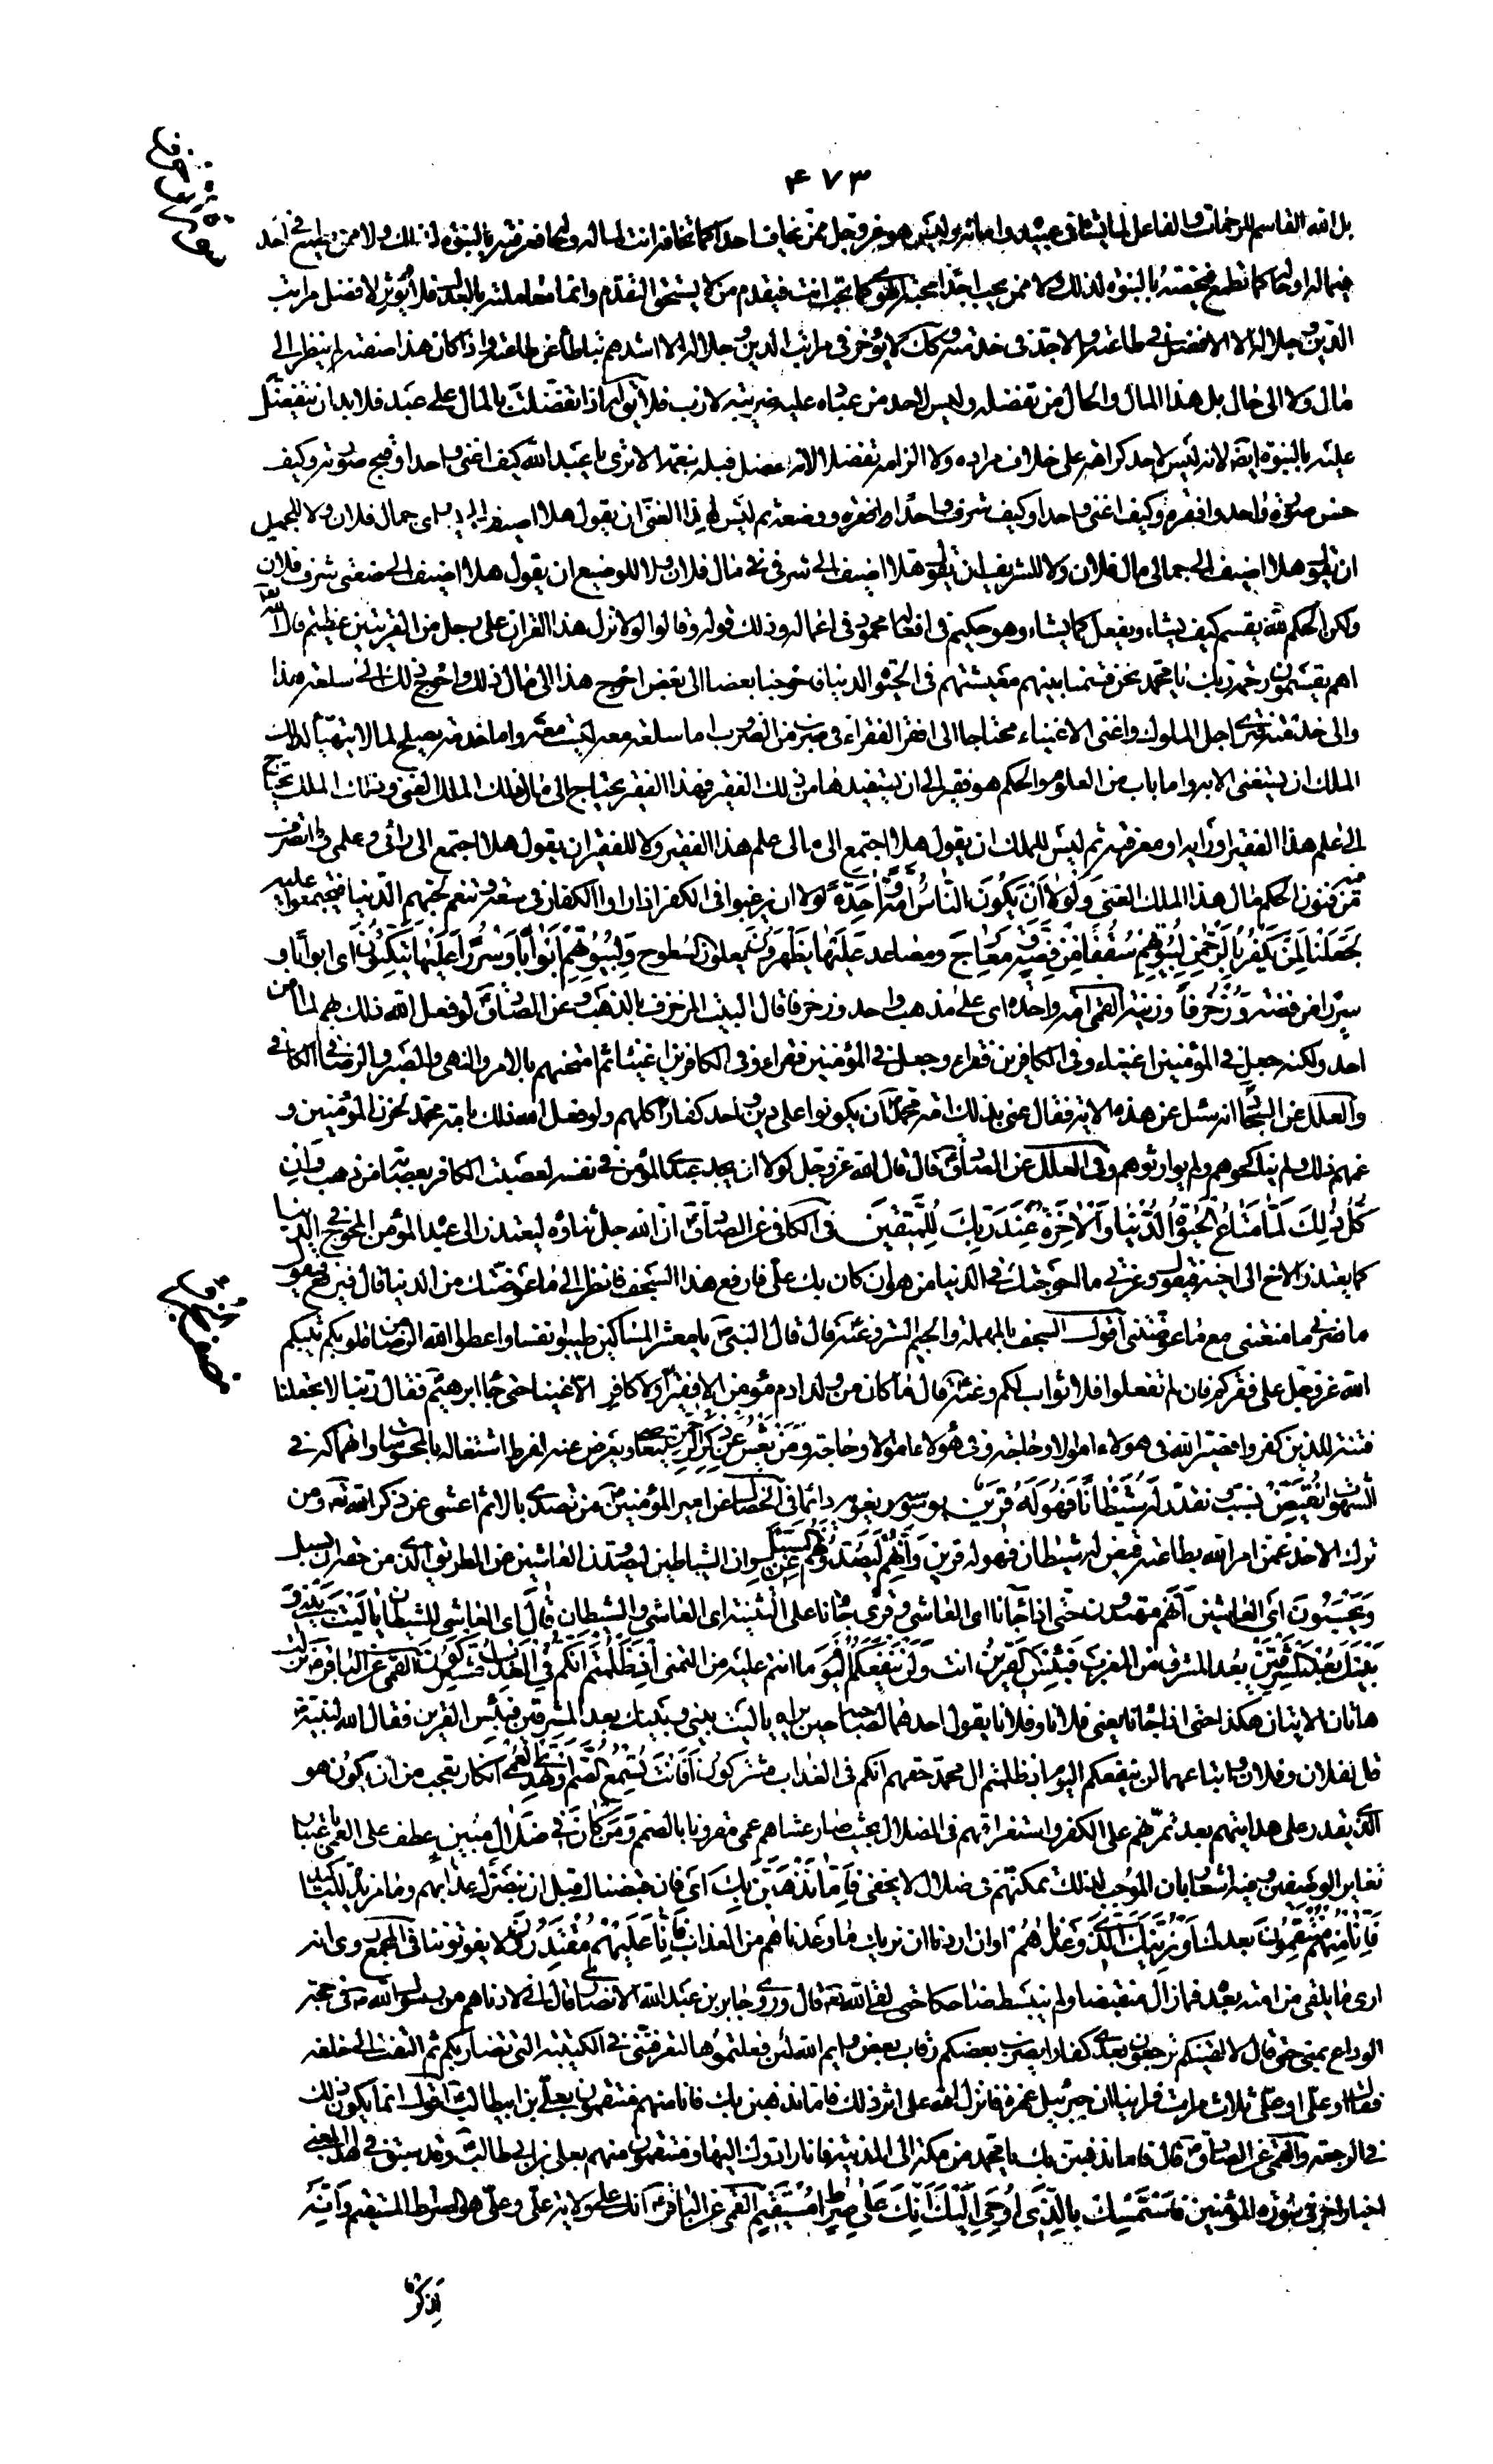 ٤٧٣
بل الله القاسم للرحمات والفاعل لما يشاء في عبيده وامائه وليس هو عز وجل ممن يخاف احدا كما تخافه انت لماله وحاله فعرفته بالنبوة لذلك ولا ممن يطمع في احد
في ماله او حاله كما تطمع فتخصه بالنبوة لذلك ولا ممن يحب احدا محبة الهوى كما تحب انت فيقدم من لا يستحق التقديم وانما معاملته بالعدل فلا يؤثر لافضل مراتب
الدين وجلاله الا الافضل في طاعته والاجد في خدمته وكذلك لا يؤخر في مراتب الدين وجلاله الا اشدهم تباطأ عن طاعته واذا كان هذا صفته لم ينظر الى
مال ولا الى حال بل هذا المال والحال من تفضله وليس لاحد من عباده عليه ضريبة لازب فلا يقال له اذا تفضلت بالمال على عبد فلا بد ان تتفضل
عليه بالنبوة ايضا لانه ليس لاحد اكراهه على خلاف مراده ولا الزامه تفضلا لانه تفضل قبله بنعمه الا ترى يا عبد الله كيف اغنى واحدا وقبح صورته وكيف
حسن صورة واحد وافقره وكيف اغنى واحدا وكيف شرف واحدا وافقره ووضعه ثم ليس لهذا الغني ان يقول هلا اضيف الى يساري جمال فلان ولا للجميل
ان يقول هلا اضيف الى جمالي مال فلان ولا للشريف ان يقول هلا اضيف الى شرفي مال فلان ولا للوضيع ان يقول هلا اضيف الى ضعتي شرف فلان
ولكن الحكم لله يقسم كيف يشاء ويفعل كما يشاء وهو حكيم في افعاله محمود في اعماله وذلك قوله وقالوا لولا نزل هذا القران على رجل من القريتين عظيم قال الله تعالى
اهم يقسمون رحمة ربك يا محمد نحن قسمنا بينهم معيشتهم في الحيوة الدنيا فاحوجنا بعضا الى بعض احوج هذا الى مال ذلك واحوج ذلك الى سلعة هذا
والى خدمته فترى اجل الملوك واغنى الاغنياء محتاجا الى افقر الفقراء في ضرب من الضروب اما سلعة معه ليست معه واما خدمة يصلح لها لا يتهيأ لذلك
الملك ان يستغني الا به واما باب من العلوم والحكم هو فقير الى ان يستفيدها من ذلك الفقير فهذا الفقير يحتاج الى مال ذلك الملك الغني وذلك الملك يحتاج
الى علم هذا الفقير او رأيه او معرفته ثم ليس للملك ان يقول هلا اجتمع الى مالي علم هذا الفقير ولا للفقير ان يقول هلا اجتمع الى رائي وعلمي وما اتصرف
فيه من فنون الحكم مال هذا الملك الغني ولولا ان يكون الناس امة واحدة لولا ان يرغبوا في الكفر اذا راوا الكفار في سعة وتنعم لحبهم الدنيا فيجتمعوا عليه
لجعلنا لمن يكفر بالرحمن لبيوتهم سقفا من فضة ومعارج ومصاعد عليها يظهرون يعلون السطوح ولبيوتهم ابوابا وسررا عليها يتكئون اى ابوابا و
سررا من فضة وزخرفا وزينة القمي امة واحدة اى على مذهب واحد وزخرفا قال البيت المزخرف بالذهب وعن الصادق لو فعل الله ذلك بهم لما امن
احد ولكنه جعل في المؤمنين اغنياء وفي الكافرين فقراء وجعل في المؤمنين فقراء وفي الكافرين اغنياء ثم امتحنهم بالامر والنهى والصبر والرضا في الكافي
والعلل عن السجاد انه سئل عن هذه الاية فقال عنى بذلك امة محمد ان يكونوا على دين واحد كفارا كلهم ولو فعل الله ذلك بامة محمد لحزن المؤمنين و
غمهم ذلك ولم يناكحوهم ولم يوارثوهم وفي العلل عن الصادق قال قال الله عز وجل لولا ان يجد عبدي المؤمن في نفسه لعصبت الكافر بعصابة من ذهب وان
كل ذلك لما متاع الحيوة الدنيا والاخرة عند ربك للمتقين في الكافي عن الصادق ان الله جل ثناؤه ليعتذر الى عبده المؤمن المحوج في الدنيا
كما يعتذر الاخ الى اخيه فيقول وعزتي ما احوجتك في الدنيا من هوان كان بك علي فارفع هذا السجف فانظر الى ما عوضتك من الدنيا قال فيرفع فيقول
ما ضرني ما منعتني مع ما عوضتني اقول السجف بالمهملة والجيم الستر وعنه قال قال النبي يا معشر المساكين طيبوا نفسا واعطوا الله الرضا من قلوبكم يثبكم
الله عز وجل على فقركم فان لم تفعلوا فلا ثواب لكم وعنه قال ما كان من ولد ادم مؤمن الا فقيرا ولا كافر الا غنيا حتى جاء ابرهيم فقال ربنا لا تجعلنا
فتنة للذين كفروا فصير الله في هولاء اموالا وحاجة وفي هؤلاء اموالا وحاجة ومن يعش عن ذكر الرحمن يتعام ويعرض عنه لفرط اشتغاله بالمحسوسات وانهماكه في
الشهوات نقيض نسبب ونقدر له شيطانا فهو له قرين يوسوسه ويغويه دائما في الخصال عن امير المؤمنين من تصدى بالاثم اعشى عن ذكر الله تعالى ومن
ترك الاخذ عمن امر الله بطاعته قيض له شيطان فهو له قرين وانهم ليصدونهم عن السبيل وان الشياطين ليصدون العاشين من الطريق الذى من حقه ان يسبل
ويحسبون اى العاشين انهم مهتدون حتى اذا جاءنا اى العاشي وقرئ جاانا على التثنية اى العاشي والشيطان قال اى العاشي للشيطان يا ليت بيني و
بينك بعد المشرقين بعد المشرق من المغرب فبئس القرين انت ولن ينفعكم اليوم ما انتم عليه من التمني اذ ظلمتم انكم في العذاب مشتركون القمي عن الباقر نزلت
هاتان الايتان هكذا حتى اذا جاانا يعني فلانا وفلانا يقول احدهما لصاحبه حين يراه يا ليت بيني وبينك بعد المشرقين فبئس القرين فقال الله لنبيه
قل لفلان وفلان واتباعهما لن ينفعكم اليوم اذ ظلمتم ال محمد حقهم انكم في العذاب مشتركون افانت تسمع الصم او تهدي العمي انكار تعجب من ان يكون هو
الذى يقدر على هدايتهم بعد تمرنهم على الكفر واستغراقهم في الضلال بحيث صار عشاهم عمى مقرونا بالصمم ومن كان في ضلال مبين عطف على العمي باعتبار
تغاير الوصفين وفيه اشعار بان الموجب لذلك تمكنهم في ضلال لا يخفى فاما نذهبن بك اى فان قبضناك قبل ان نبصرك عذابهم وما مزيدة للتاكيد
فانا منهم منتقمون بعدك او نرينك الذي وعدناهم او ان اردنا ان نريك ما وعدناهم من العذاب فانا عليهم مقتدرون لا يفوتوننا في المجمع روى انه
ارى ما يلقى من امته بعده فما زال منقبضا ولم ينبسط ضاحكا حتى لقى الله تعالى قال وروى جابر بن عبد الله الانصاري قال اني لادناهم من رسول الله في حجة
الوداع بمنى حتى قال لا الفينكم ترجعون بعدي كفارا يضرب بعضكم رقاب بعض وايم الله لئن فعلتموها لتعرفنني في الكتيبة التي تضاربكم ثم التفت الى خلفه
فقال او علي او علي ثلاث مرات فراينا ان جبرئيل غمزه فانزل الله على اثر ذلك فاما نذهبن بك فانا منهم منتقمون بعلي بن ابيطالب اقول انما يكون ذلك
في الرجعة والقمي عن الصادق قال فاما نذهبن بك يا محمد من مكة الى المدينة فانا رادوك اليها ومنتقمون منهم بعلي بن ابي طالب وقد سبق في هذا المعنى
اخبار اخر في سورة المؤمنين فاستمسك بالذى اوحى اليك انك على صراط مستقيم القمي عن الباقر انك على ولاية علي وعلي هو الصراط المستقيم وانه
لذكر